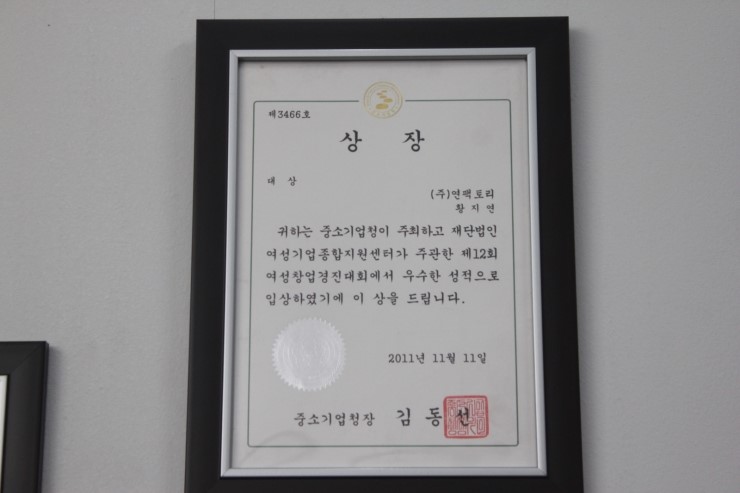 제3466호
상 장
대 상
(주)연팩토리
황 지 연
귀하는 중소기업청이 주최하고 재단법인
여성기업종합지원센터가 주관한 제12회
여성창업경진대회에서 우수한 성적으로
입상하였기에 이 상을 드립니다.
2011년 11월 11일
중소기업청장 김 동 선